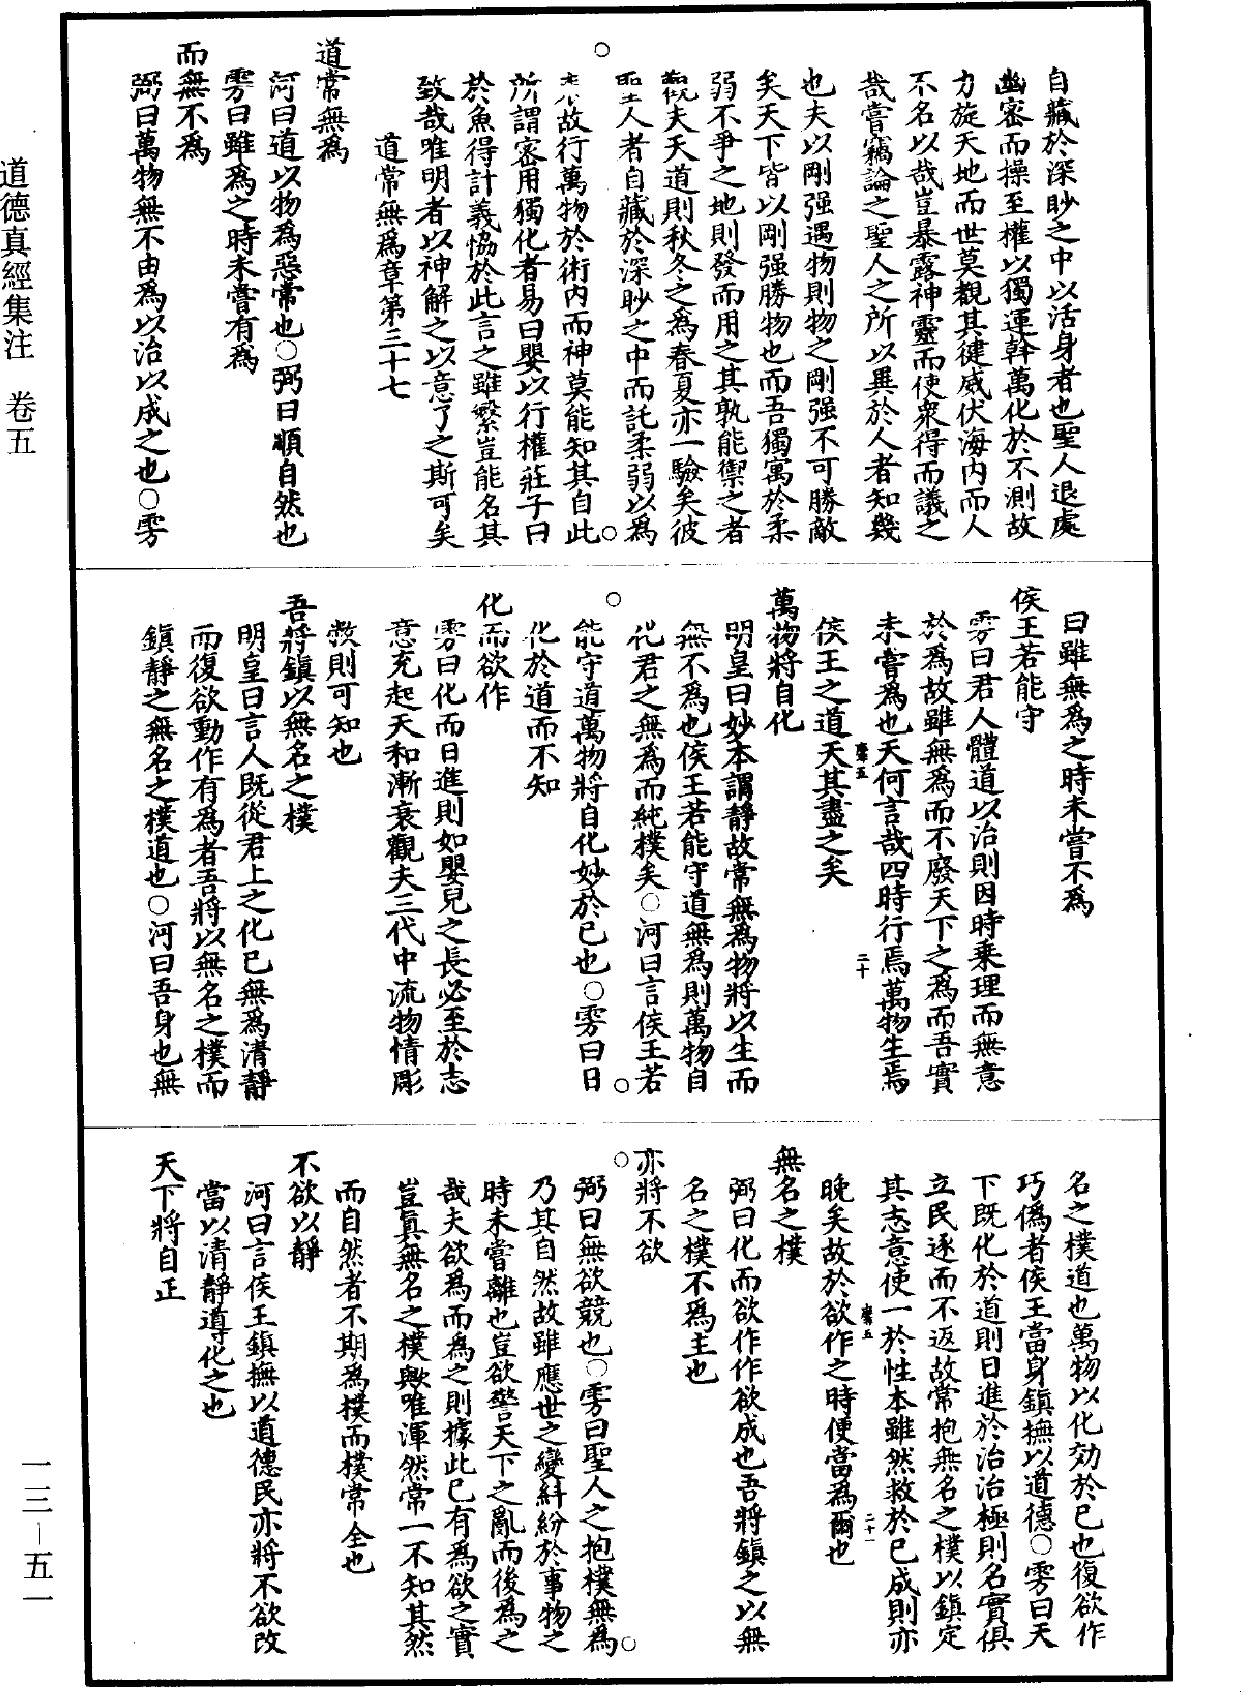 自藏於深眇之中以活身者也聖人退處
幽密而操至權以獨運斡萬化於不測故
力旋天地而世莫覩其健威伏海內而人
不名以哉豈暴露神靈而使衆得而議之
哉嘗竊論之聖人之所以異於人者知幾
也夫以剛强遇物則物之剛强不可勝敵
矣天下皆以剛强勝物也而吾獨寓於柔
弱不爭之地則發而用之其孰能禦之者
觀夫天道則秋冬之爲春夏亦一驗矣彼
聖人者自藏於深眇之中而託柔弱以爲
表故行萬物於術內而神莫能知其自此
所謂密用獨化者易曰巽以行權莊子曰
於魚得計義恊於此言之雖繁豈能名其
致哉唯明者以神解之以意了之斯可矣
道常無爲章第三十七
道常無爲
河曰道以物爲惡常也○弼曰順自然也
雱曰雖爲之時未嘗有爲
而無不爲
弼曰萬物無不由爲以治以成之也○雱
曰雖無爲之時未嘗不爲
侯王若能守
雱曰君人體道以治則因時乗理而無意
於爲故雖無爲而不廢天下之爲而吾實
未嘗爲也天何言哉四時行焉萬物生焉
侯王之道天其盡之矣
二十
萬物將自化
明皇曰妙本謂靜故常無爲物將以生而
無不爲也侯王若能守道無爲則萬物自
化君之無爲而純樸矣○河曰言侯王若
能守道萬物將自化妙於己也○雱曰日
化於道而不知
化而欲作
雱曰化而日進則如嬰兒之長必至於志
意充起天和漸衰觀夫三代中流物情彫
弊則可知也
吾將鎮以無名之樸
明皇曰言人既從君上之化已無爲清靜
而復欲動作有爲者吾將以無名之樸而
鎮靜之無名之樸道也○河曰吾身也無
名之樸道也萬物以化効於已也復欲作
巧僞者侯王當身鎮撫以道德○雱曰天
下既化於道則日進於治治極則名實俱
立民逐而不返故常抱無名之樸以鎮定
其志意使一於性本雖然救於已成則亦
晚矣故於欲作之時便當爲爾也
二十一
無名之樸
弼曰化而欲作作欲成也吾將鎮之以無
名之樸不爲主也
亦將不欲
弼曰無欲競也○雱曰聖人之抱樸無爲
乃其自然故雖應世之變紏紛於事物之
時未嘗離也豈欲警天下之亂而後爲之
哉夫欲爲而爲之則據此已有爲欲之實
豈眞無名之樸歟唯渾然常一不知其然
而自然者不期爲樸而樸常全也
不欲以靜
河曰言侯王鎮撫以道德民亦將不欲改
當以清靜導化之也
天下將自正
道德真經集注　卷五
一三－五一